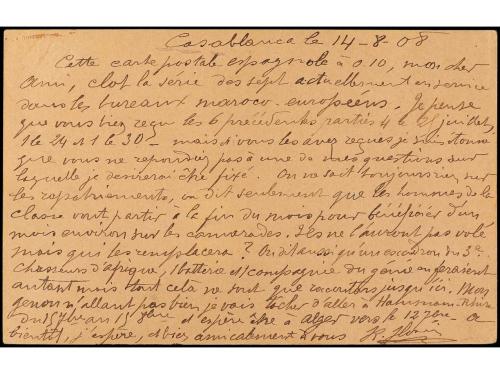 Casablanca le 14-8-08
Cette carte postale espagnole à 0.10, mon cher
Ami, clot la série des sept actuellement en service
dans les bureaux maroco-européens. Je pense
que vous avez reçu les 6 précédentes, parties 4 le 21 juillet,
1 le 24 et 1 le 30 — mais si vous les avez reçues je suis étonné
que vous ne repondiez pas à une de mes questions sur
laquelle je desirerai être fixé. On ne sait toujours rien sur
les rapatriements, on dit seulement que les hommes de la
classe vont partir à la fin du mois pour bénéficier d'un
mois environ sur les camarades. Ils ne l'auront pas volé
mais qui les remplacera? On dit aussi qu'un escadron du 3e
Chasseurs d'afrique, 1 batterie et 1 compagnie du genie en feraient
autant mais tout cela ne sont que racontars jusqu'ici. Mon
genou n'allant pas bien je vais tacher d'aller à Hammam-
du 15 7bre au 15 8bre et espère être à alger vers le 12 7bre. a
bientôt, j'espère, et bien amicalement à vous